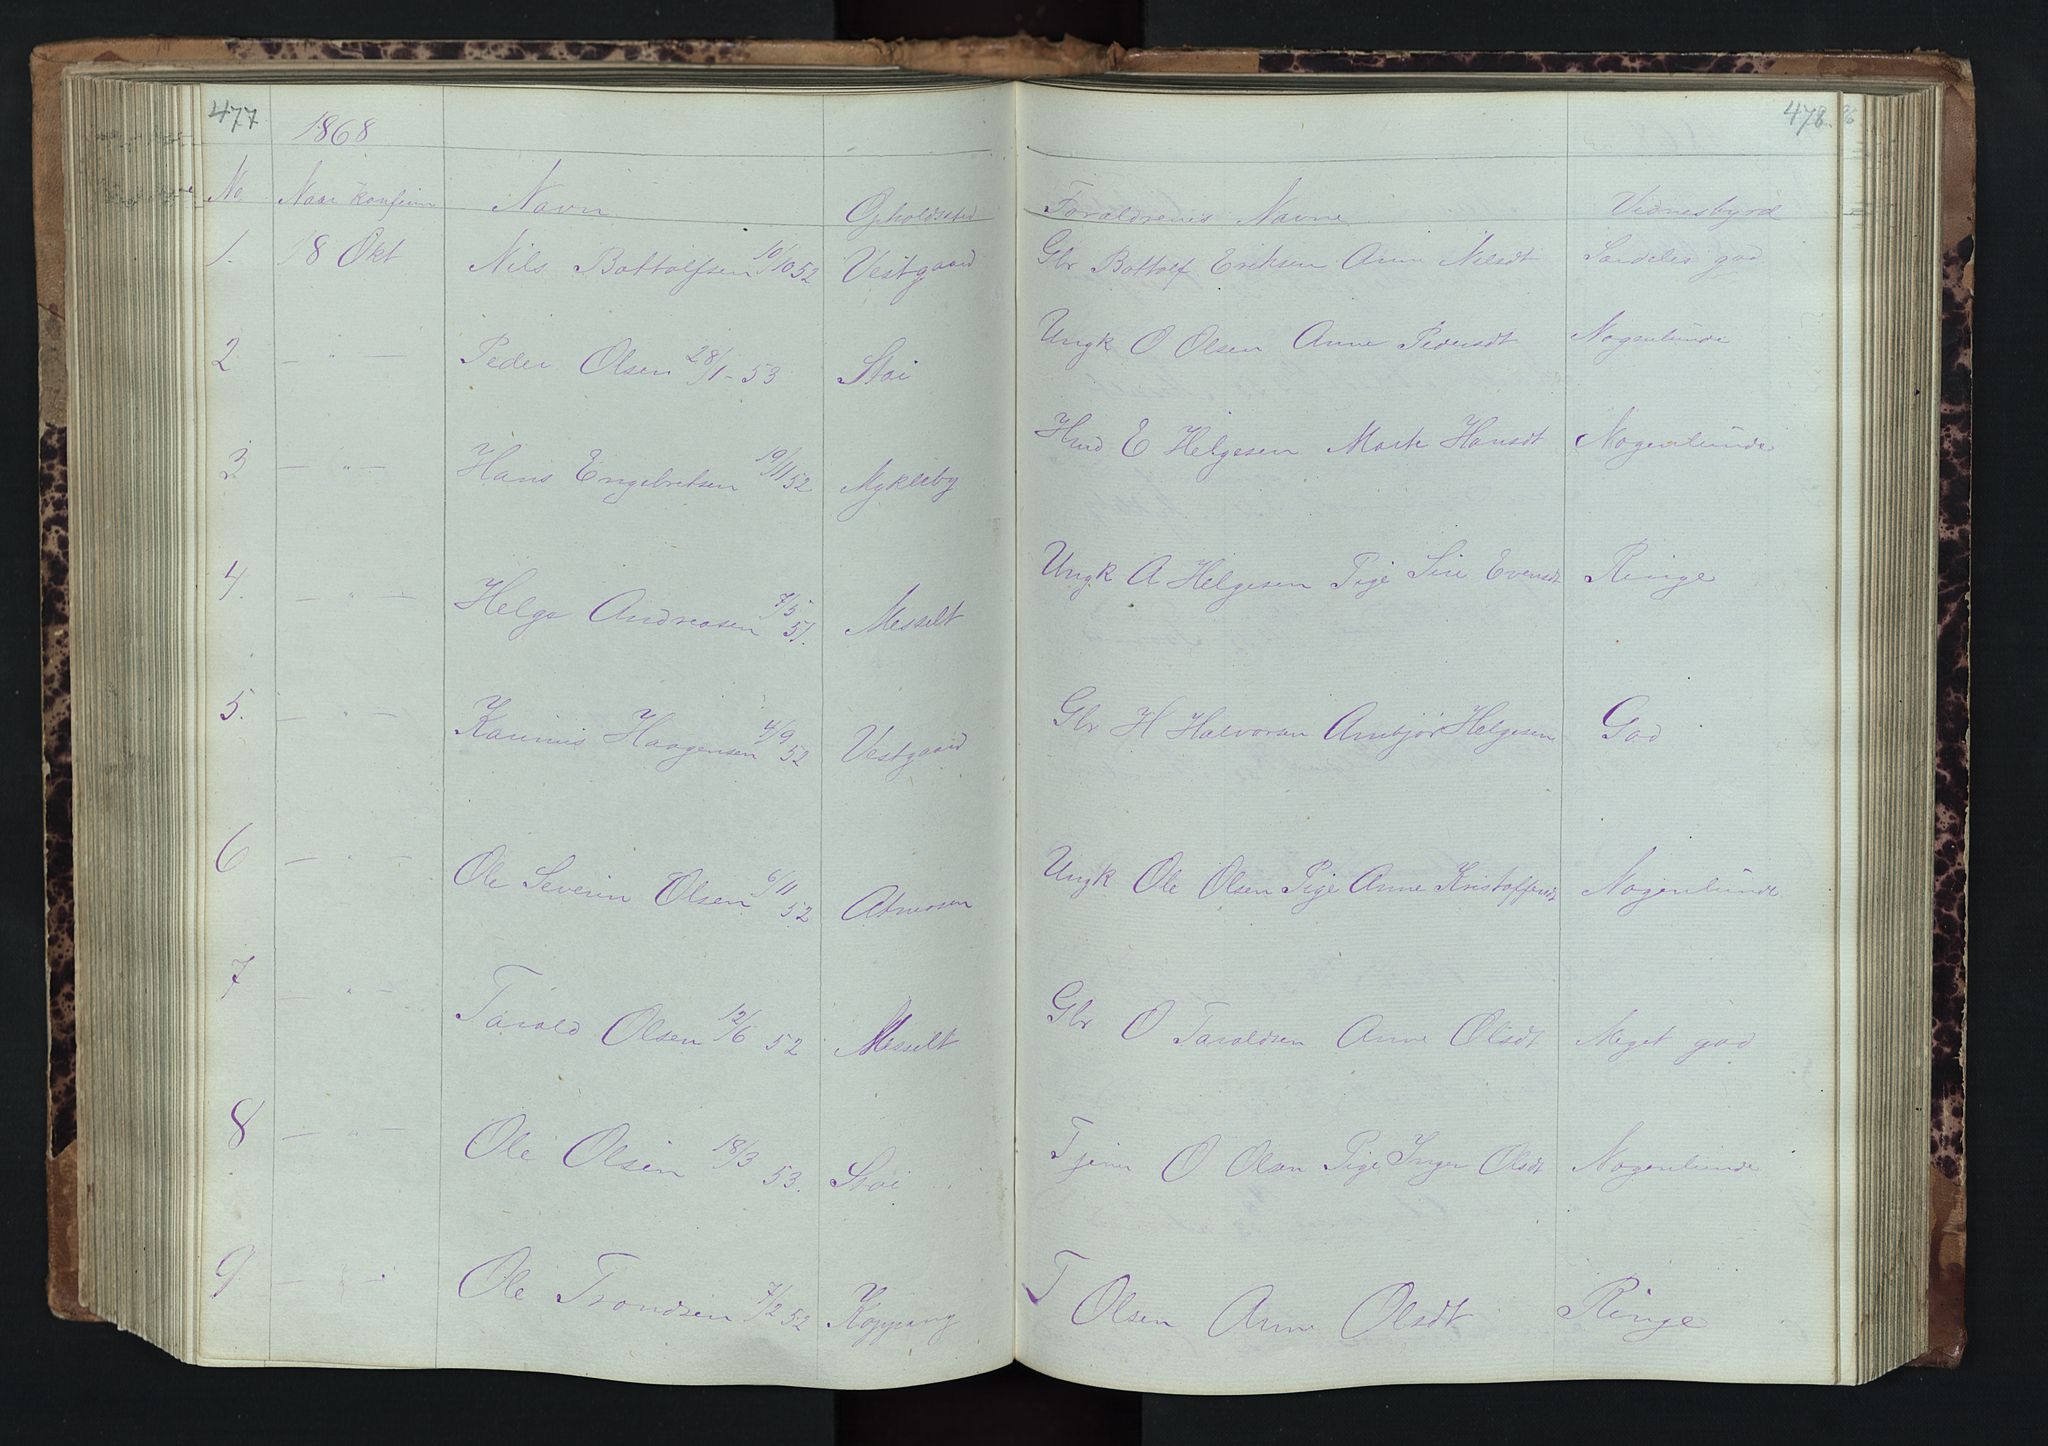 477
478
1868
No Naar konfirm Navn Opholdssted Forældrenes Navne Vidnesbyrd
1. 18 Okt Nils Bottolfsen 10/10 52 Vestgaard Gbr Bottolf Eriksen Anne Nilsdt Særdeles god
2 — " — Peder Olsen 28/1 - 53 Stai Ungk O Olsen Anne Pedersdt Nogenlunde
3 — " — Hans Engebretsen 19/11 52 Mykleby Hmd E Helgesen Marte Hansdt Nogenlunde
4. — " — Helge Andreasen 7/5 51. Messelt Ungk A Helgesen Pige Siri Evensdt Ringe
5. — " — Haagensen 4/9 52 Vestgaard Gbr H Halvorsen Anbjør Helgesen God
6 — " — Ole Severin Olsen 6/11 52 Atneosen Ungk Ole Olsen Pige Anne Kristoffersdt Nogenlunde
7 — " — Tarald Olsen 12/6 52 Messelt Gbr O Taraldsen Anne Olsdt Meget god
8 — " — Ole Olsen 18/3 53. Stai Tjener O Olsen Pige Inger Olsdt Nogenlunde
9 — " — Ole Trondsen 7/2 52 Koppang T Olsen Anne Olsdt Ringe